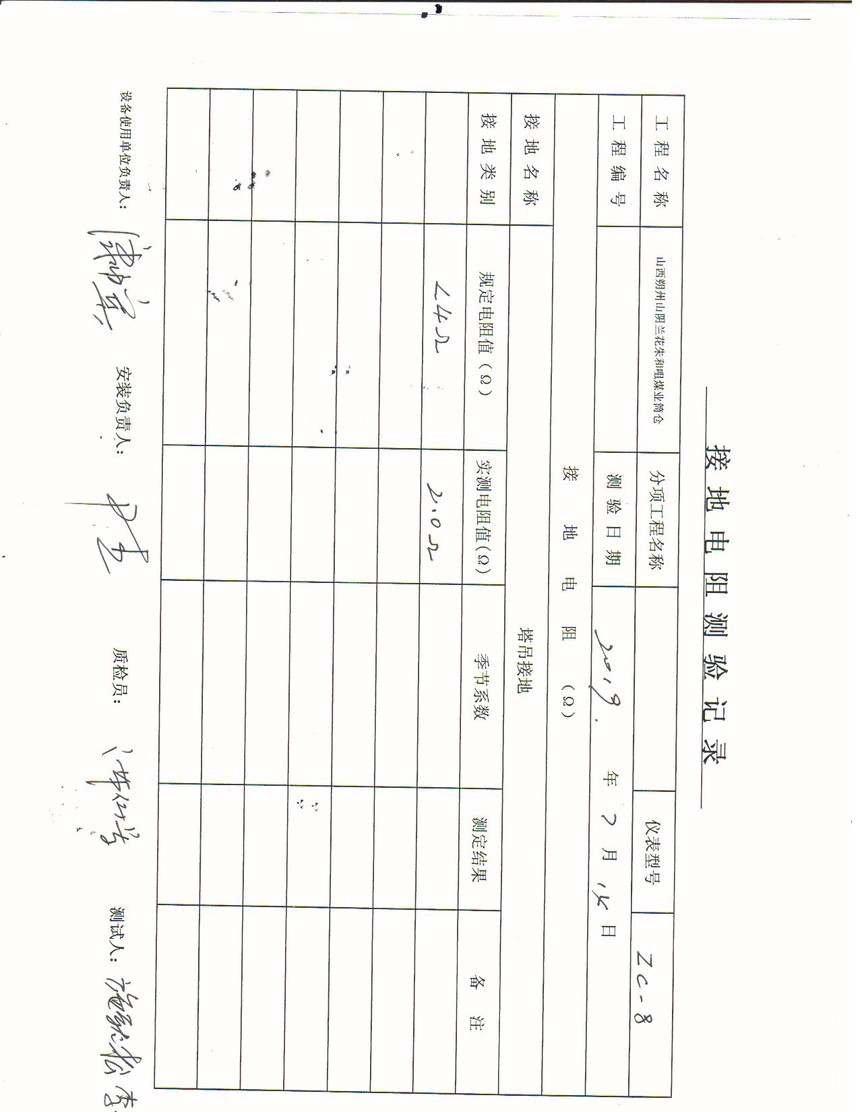 接地电阻测验记录
工程名称 山西朔州山阴兰花朱和咀煤业筒仓 分项工程名称 仪表型号 ZC-8
工程编号 测验日期 2019. 年 7 月 日
接地电阻(Ω)
接地名称 塔吊接地
接地类别 规定电阻值(Ω) 实测电阻值(Ω) 季节系数 测定结果 备注
<4Ω 2.0Ω
设备使用单位负责人: 安装负责人: 质检员: 测试人: